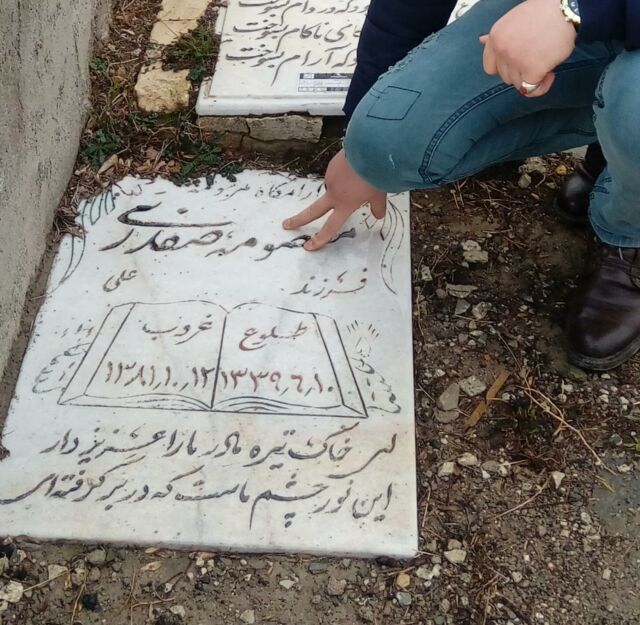 که آرام بسوخت
آرامگاه
معصومه صفدری
فرزند علی
طلوع غروب
۱۳۳۹٫۶٫۱۰ ۱۳۸۱٫۱۰٫۱۲
ای خاک تیره مادر ما را عزیز دار
این نور چشم ماست که در بر گرفته‌ای